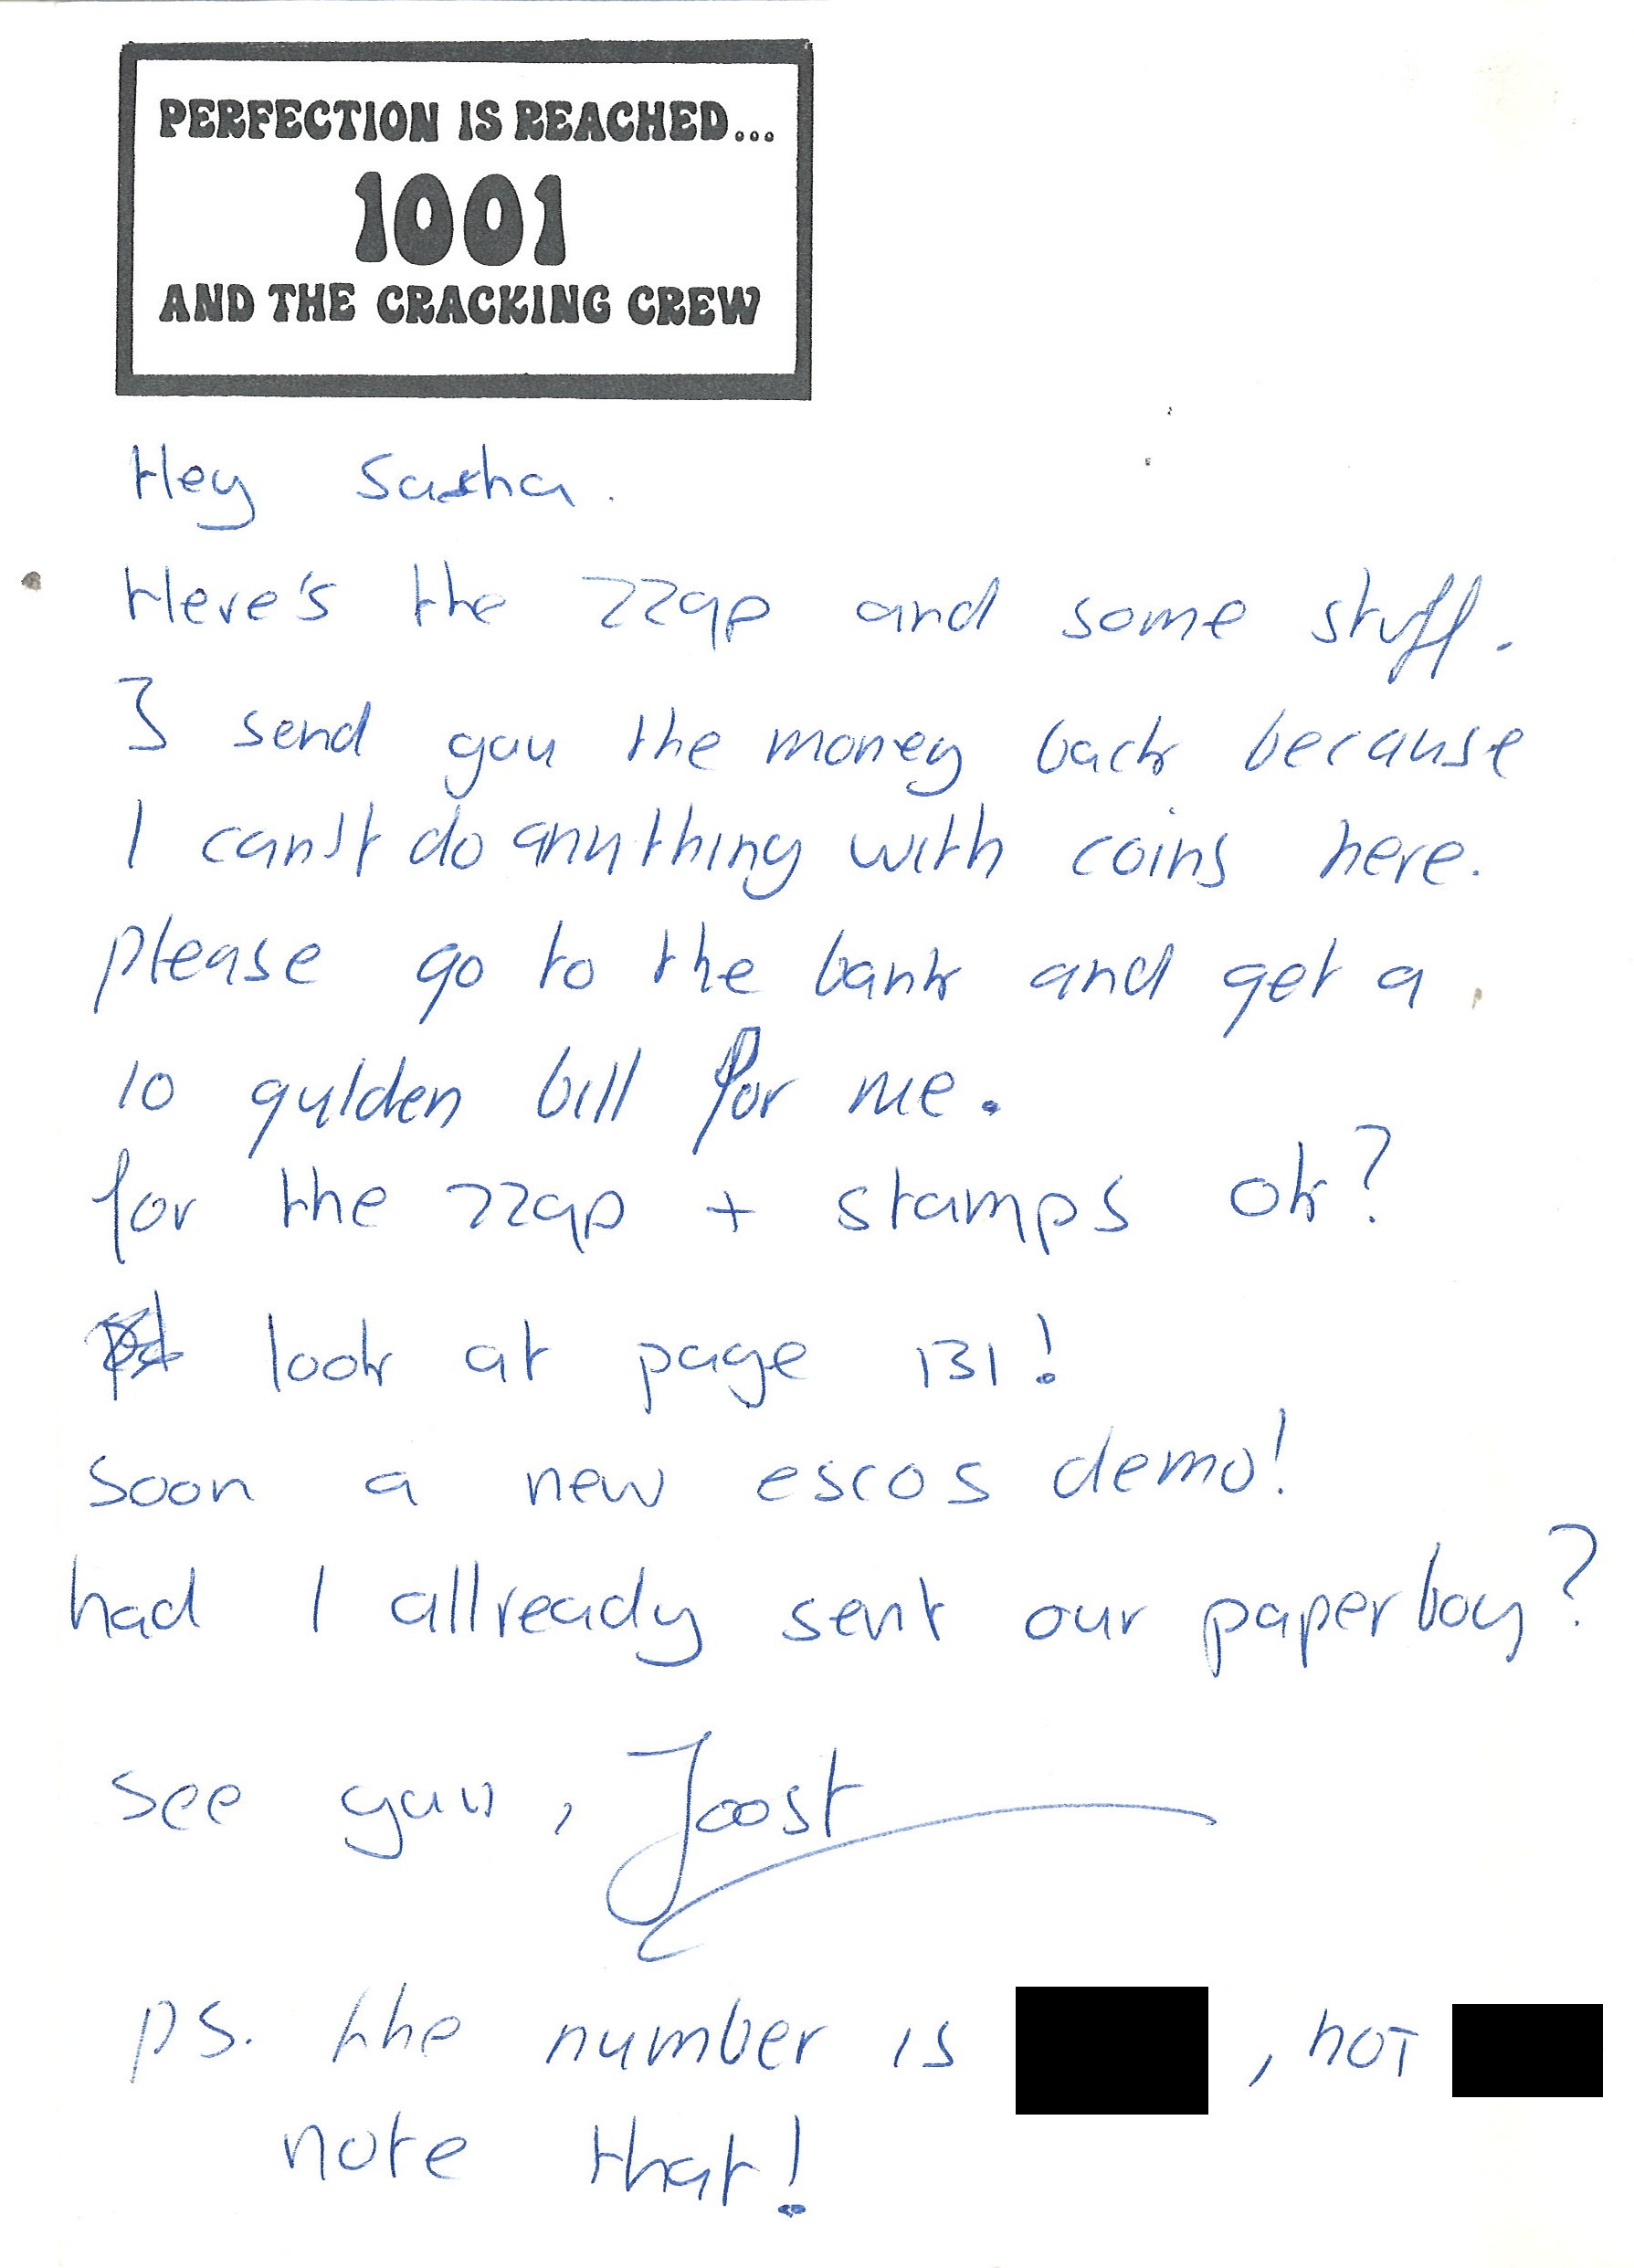 PERFECTION IS REACHED...
1001
AND THE CRACKING CREW
Hey Sasha.
Here's the zzap and some stuff.
I send you the money back because
I can't do anything with coins here.
please go to the bank and get a
10 gulden bill for me.
for the zzap + stamps ok?
look at page 131!
soon a new escos demo!
had I allready sent our paperboy?
see you, Joost
ps. the number is , not
note that!